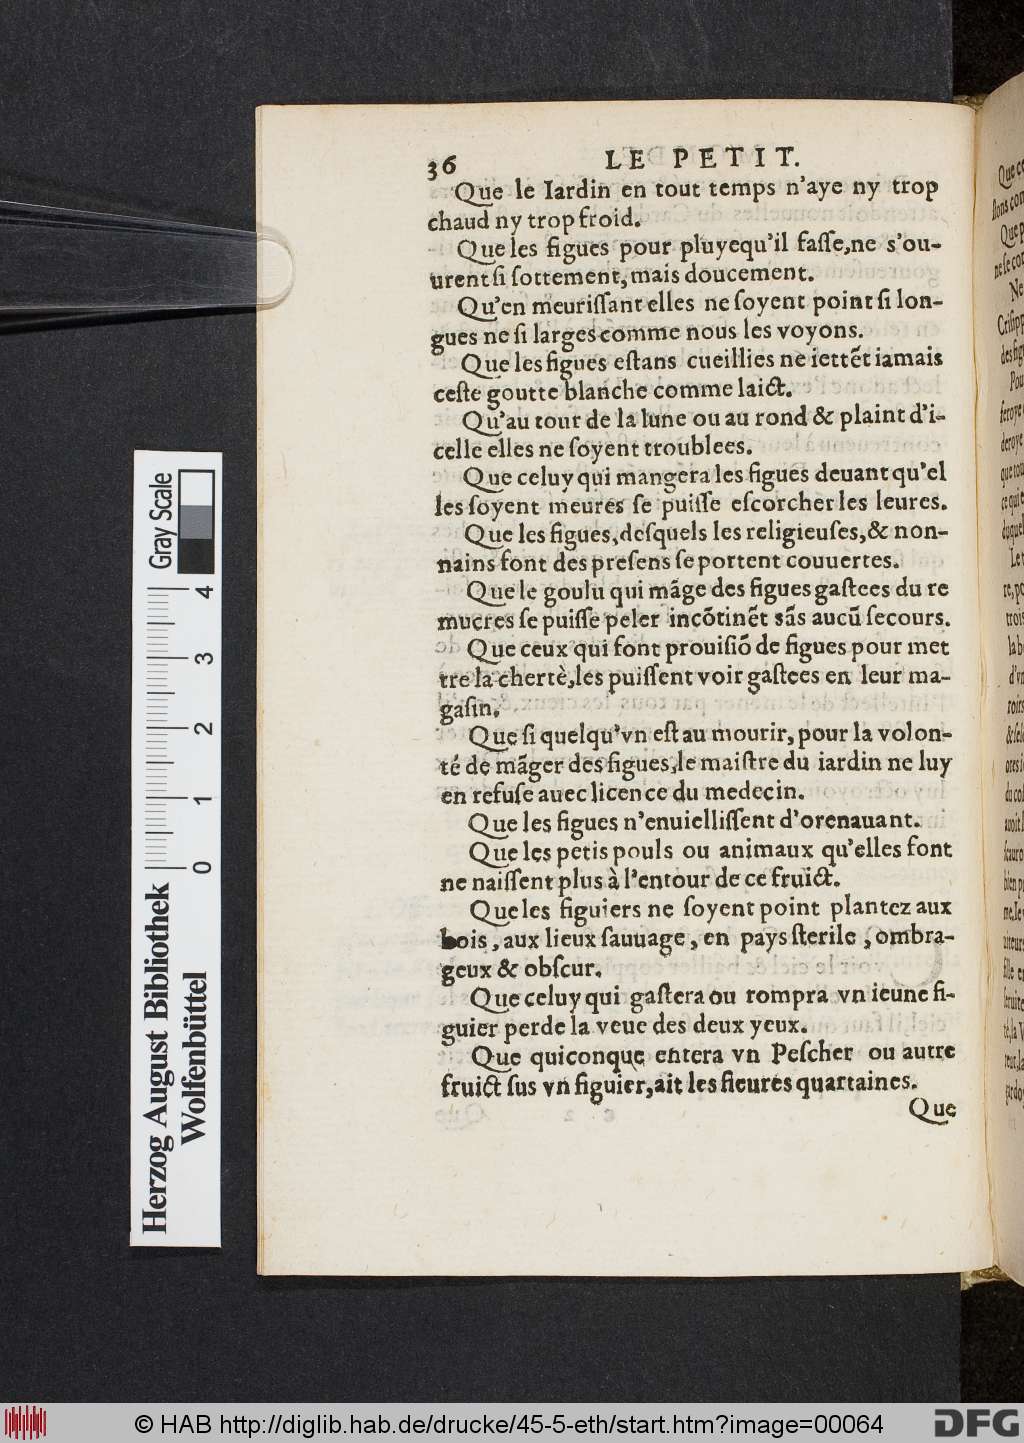 36 LE PETIT.
Que le Iardin en tout temps n'aye ny trop
chaud ny trop froid.
Que les figues pour pluyequ'il faſſe,ne s'ou-
urent ſi ſottement, mais doucement.
Qu'en meuriſſant elles ne ſoyent point ſi lon-
gues ne ſi larges comme nous les voyons.
Que les figues eſtans cueillies ne iettẽt iamais
ceſte goutte blanche comme laict.
Qu'au tour de la lune ou au rond & plaint d'i-
celle elles ne ſoyent troublees.
Que celuy qui mangera les figues deuant qu'el
les ſoyent meures ſe puiſſe eſcorcher les leures.
Que les figues, deſquels les religieuſes, & non-
nains font des preſens ſe portent couuertes.
Que le goulu qui mãge des figues gaſtees du re
mueres ſe puiſſe peler incõtinẽt sãs aucũ ſecours.
Que ceux qui font prouiſiõ de figues pour met
tre la chertè, les puiſſent voir gaſtees en leur ma-
gaſin.
Que ſi quelqu'vn eſt au mourir, pour la volon-
té de mãger des figues, le maiſtre du iardin ne luy
en refuſe auec licence du medecin.
Que les figues n'enuielliſſent d'orenauant.
Que les petis pouls ou animaux qu'elles font
ne naiſſent plus à l'entour de ce fruict.
Que les figuiers ne ſoyent point plantez aux
bois, aux lieux ſauuage, en pays ſterile, ombra-
geux & obſcur.
Que celuy qui gaſtera ou rompra vn ieune fi-
guier perde la veue des deux yeux.
Que quiconque entera vn Peſcher ou autre
fruict ſus vn figuier, ait les fieures quartaines.
Que
Gray Scale
4 3 2 1 0
Herzog August Bibliothek
Wolfenbüttel
© HAB http://diglib.hab.de/drucke/45-5-eth/start.htm?image=00064
DFG